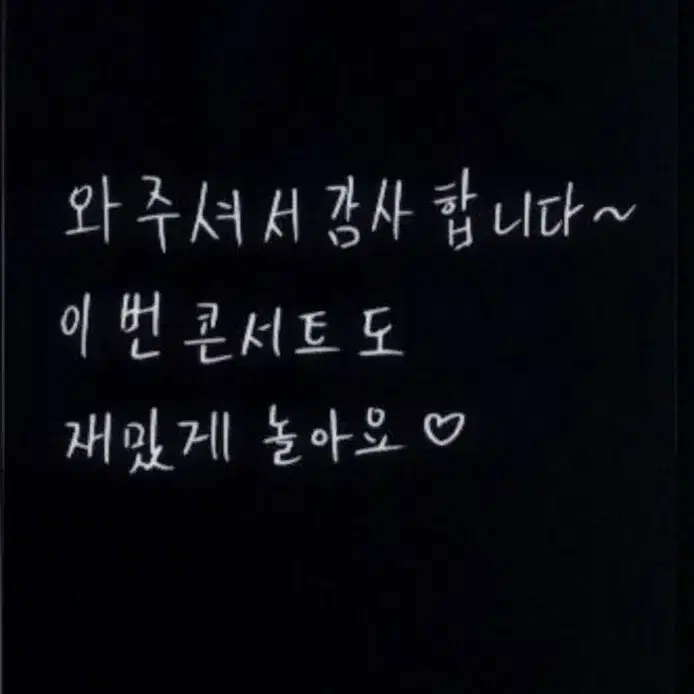 와주셔서 감사합니다~
이번 콘서트도
재밌게 놀아요♡